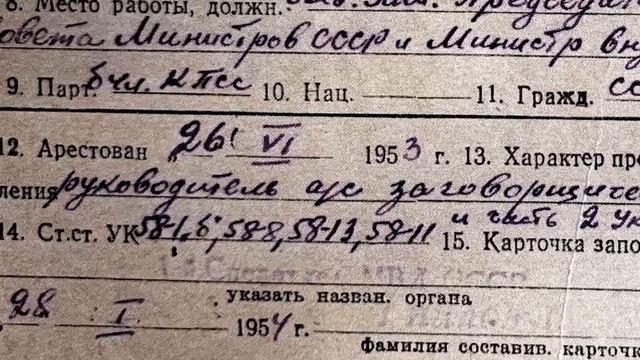 8. Место работы, должн. зам. Председат
Совета Министров СССР и Министр вну
9. Парт. б чл. КПСС 10. Нац. 11. Гражд. СС
12. Арестован „26" VI 1953 г. 13. Характер пр
ления руководитель а/с заговорщичес
и часть 2 ук
14. Ст.ст. УК 58-1,б", 58-8, 58-13, 58-11 15. Карточка запо
МВД СССР
указать назван. органа
28 I 1954 г.
Фамилия составив. карточк